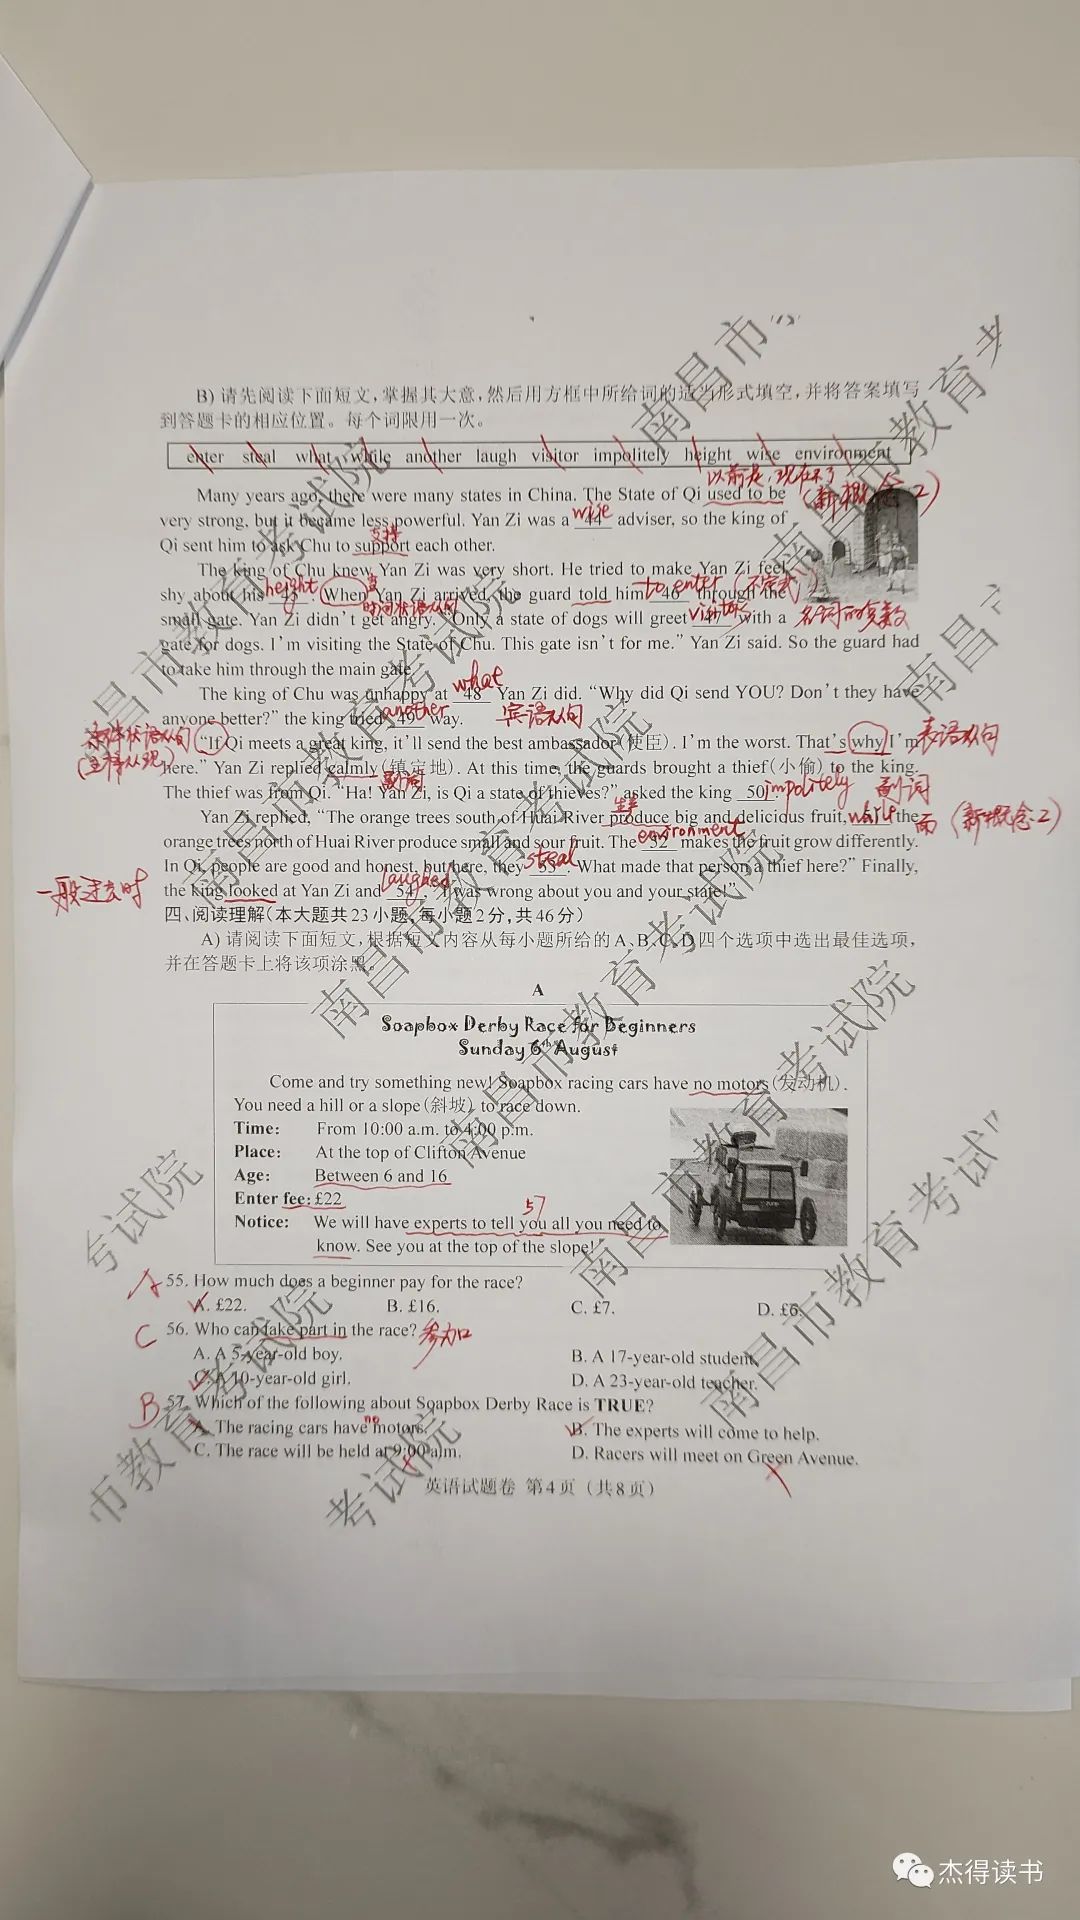 B) 请先阅读下面短文,掌握其大意,然后用方框中所给词的适当形式填空,并将答案填写
到答题卡的相应位置。每个词限用一次。
enter steal what while another laugh visitor impolitely height wise environment
以前是,现在不了
(新概念2)
Many years ago, there were many states in China. The State of Qi used to be
wise
very strong, but it became less powerful. Yan Zi was a 44 adviser, so the king of
支持
Qi sent him to ask Chu to support each other.
The king of Chu knew Yan Zi was very short. He tried to make Yan Zi feel
height 当 to enter (不定式)
shy about his 45 . When Yan Zi arrived, the guard told him 46 through the
时间状语从句 visitors 名词的复数
small gate. Yan Zi didn't get angry. "Only a state of dogs will greet 47 with a
gate for dogs. I'm visiting the State of Chu. This gate isn't for me." Yan Zi said. So the guard had
to take him through the main gate.
what
The king of Chu was unhappy at 48 Yan Zi did. "Why did Qi send YOU? Don't they have
another 宾语从句
anyone better?" the king tried 49 way.
条件状语从句
(主将从现)
"If Qi meets a great king, it'll send the best ambassador(使臣). I'm the worst. That's why I'm
表语从句
here." Yan Zi replied calmly(镇定地). At this time, the guards brought a thief(小偷) to the king.
副词 impolitely 副词
The thief was from Qi. "Ha! Yan Zi, is Qi a state of thieves?" asked the king 50 .
生产 while 而 (新概念2)
Yan Zi replied, "The orange trees south of Huai River produce big and delicious fruit, 51 the
environment
orange trees north of Huai River produce small and sour fruit. The 52 makes the fruit grow differently.
steal
In Qi, people are good and honest, but here, they 53 . What made that person a thief here?" Finally,
一般过去时 laughed
the king looked at Yan Zi and 54 , "I was wrong about you and your state!"
四、阅读理解(本大题共23小题,每小题2分,共46分)
A) 请阅读下面短文,根据短文内容从每小题所给的A、B、C、D四个选项中选出最佳选项,
并在答题卡上将该项涂黑。
A
Soapbox Derby Race for Beginners
Sunday 6th August
Come and try something new! Soapbox racing cars have no motors(发动机).
You need a hill or a slope(斜坡) to race down.
Time: From 10:00 a.m. to 4:00 p.m.
Place: At the top of Clifton Avenue
Age: Between 6 and 16
Enter fee: £22
57
Notice: We will have experts to tell you all you need to
know. See you at the top of the slope!
A 55. How much does a beginner pay for the race?
A. £22. B. £16. C. £7. D. £6.
C 56. Who can take part in the race? 参加
A. A 5-year-old boy. B. A 17-year-old student.
C. A 10-year-old girl. D. A 23-year-old teacher.
B 57. Which of the following about Soapbox Derby Race is TRUE?
no
A. The racing cars have motors. B. The experts will come to help.
C. The race will be held at 9:00 a.m. D. Racers will meet on Green Avenue.
英语试题卷 第4页(共8页)
南昌市教育考试院
杰得读书